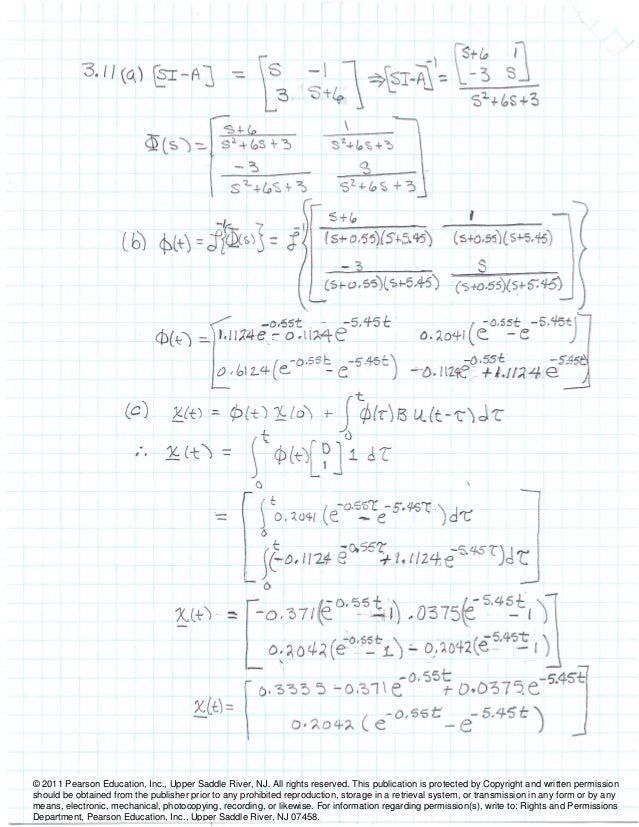 3.11 (a) [SI-A] = [S -1; 3 S+6] ⇒ [SI-A]⁻¹ = [S+6 1; -3 S] / S²+6S+3
Φ(s) = [S+6/S²+6S+3 1/S²+6S+3; -3/S²+6S+3 S/S²+6S+3]
(b) φ(t) = ℒ⁻¹{Φ(s)} = ℒ⁻¹{[S+6/(S+0.55)(S+5.45) 1/(S+0.55)(S+5.45); -3/(S+0.55)(S+5.45) S/(S+0.55)(S+5.45)]}
φ(t) = [1.1124e^-0.55t - 0.1124e^-5.45t 0.2041(e^-0.55t - e^-5.45t); 0.6124(e^-0.55t - e^-5.45t) -0.1124e^-0.55t + 1.1124e^-5.45t]
(c) x(t) = φ(t) x(0) + ∫₀ᵗ φ(τ) B u(t-τ) dτ
∴ x(t) = ∫₀ᵗ φ(t) [0; 1] 1 dτ
= [∫₀ᵗ 0.2041(e^-0.55τ - e^-5.45τ) dτ; ∫₀ᵗ (-0.1124e^-0.55τ + 1.1124e^-5.45τ) dτ]
x(t) = [-0.371(e^-0.55t - 1) .0375(e^-5.45t - 1); 0.2042(e^-0.55t - 1) - 0.2042(e^-5.45t - 1)]
x(t) = [0.3335 - 0.371e^-0.55t + 0.0375e^-5.45t; 0.2042(e^-0.55t - e^-5.45t)]
© 2011 Pearson Education, Inc., Upper Saddle River, NJ. All rights reserved. This publication is protected by Copyright and written permission
should be obtained from the publisher prior to any prohibited reproduction, storage in a retrieval system, or transmission in any form or by any
means, electronic, mechanical, photocopying, recording, or likewise. For information regarding permission(s), write to: Rights and Permissions
Department, Pearson Education, Inc., Upper Saddle River, NJ 07458.